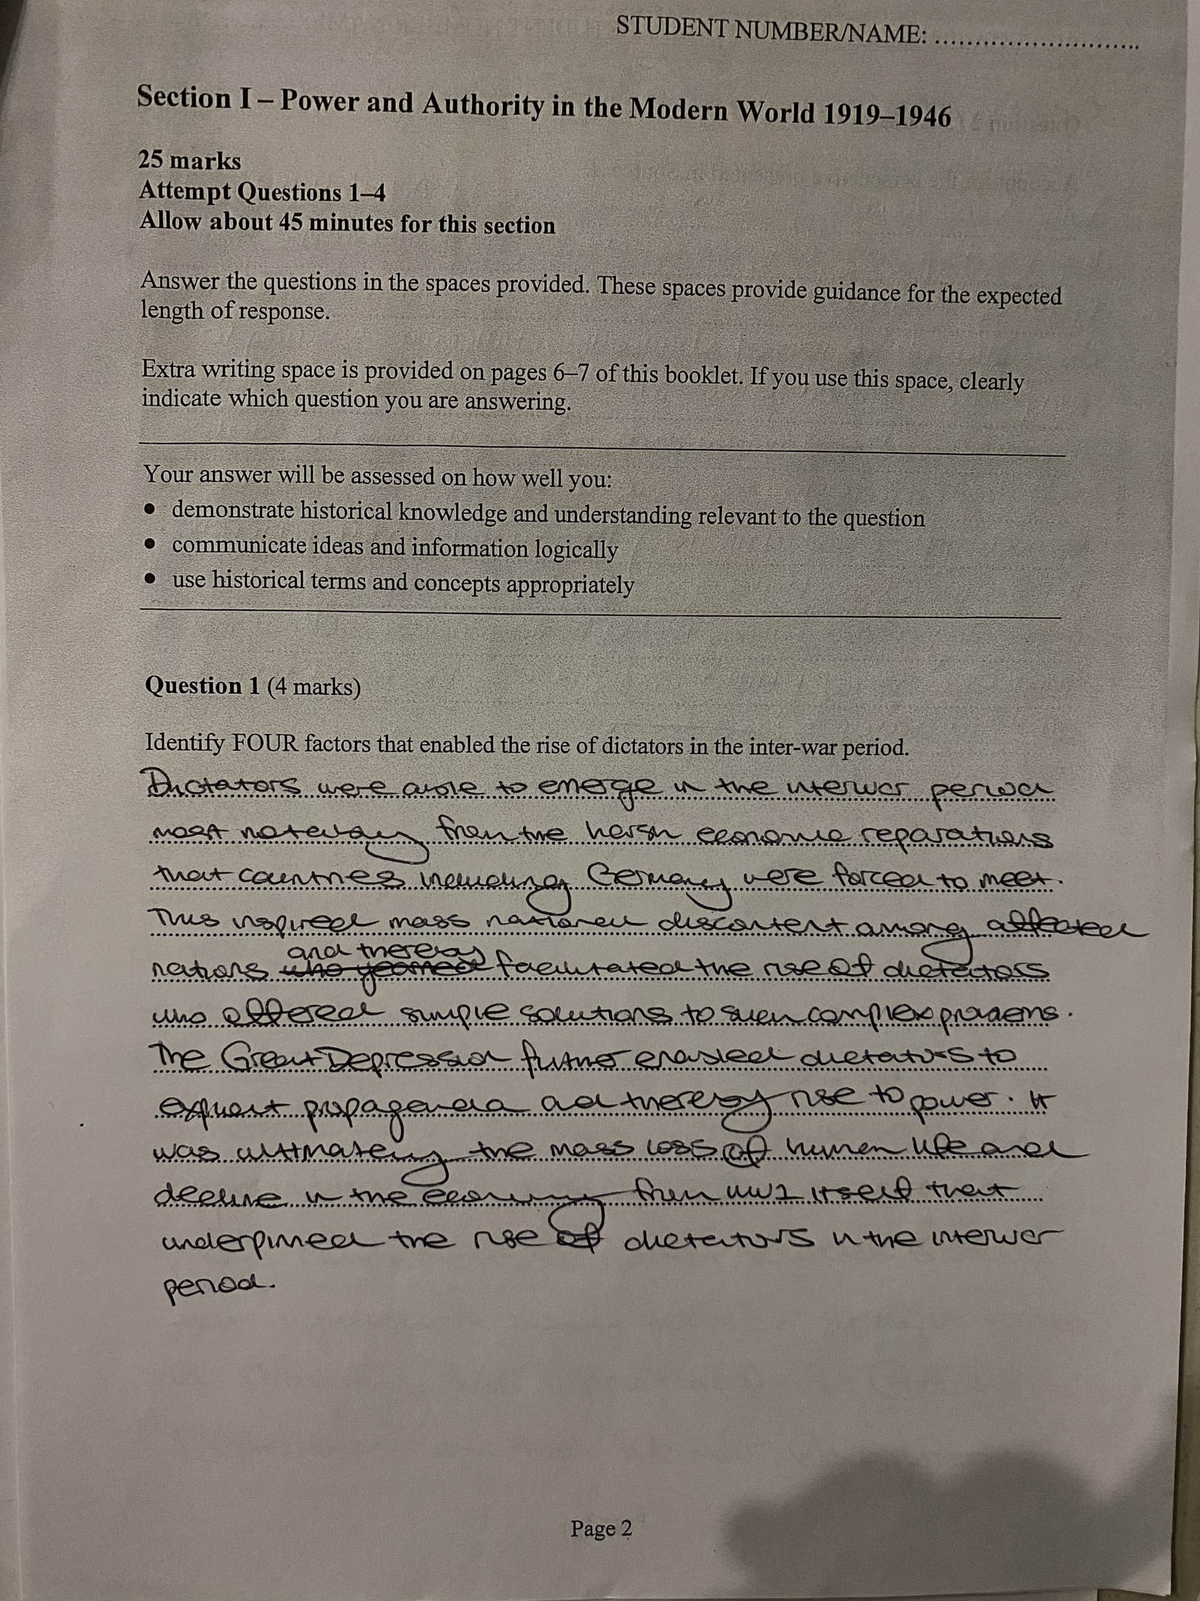 STUDENT NUMBER/NAME: ............................
Section I – Power and Authority in the Modern World 1919–1946
25 marks
Attempt Questions 1–4
Allow about 45 minutes for this section
Answer the questions in the spaces provided. These spaces provide guidance for the expected
length of response.
Extra writing space is provided on pages 6–7 of this booklet. If you use this space, clearly
indicate which question you are answering.
Your answer will be assessed on how well you:
• demonstrate historical knowledge and understanding relevant to the question
• communicate ideas and information logically
• use historical terms and concepts appropriately
Question 1 (4 marks)
Identify FOUR factors that enabled the rise of dictators in the inter-war period.
Dictators were able to emerge in the interwar period
most notably from the harsh economic reparations
that countries including Germany were forced to meet.
This inspired mass national discontent among affected
and thereby
nations who yearned facilitated the rise of dictators
who offered simple solutions to such complex problems.
The Great Depression further enabled dictators to
exploit propaganda and thereby rise to power. It
was ultimately the mass loss of human life and
decline in the economy from WW1 itself that
underpinned the rise of dictators in the interwar
period.
Page 2